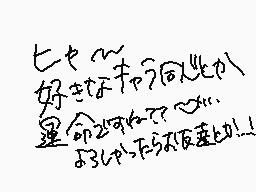 ヒャ〜
好きなキャラ同じとか
運命ですね??〜....
よろしかったらお友達とか..!!